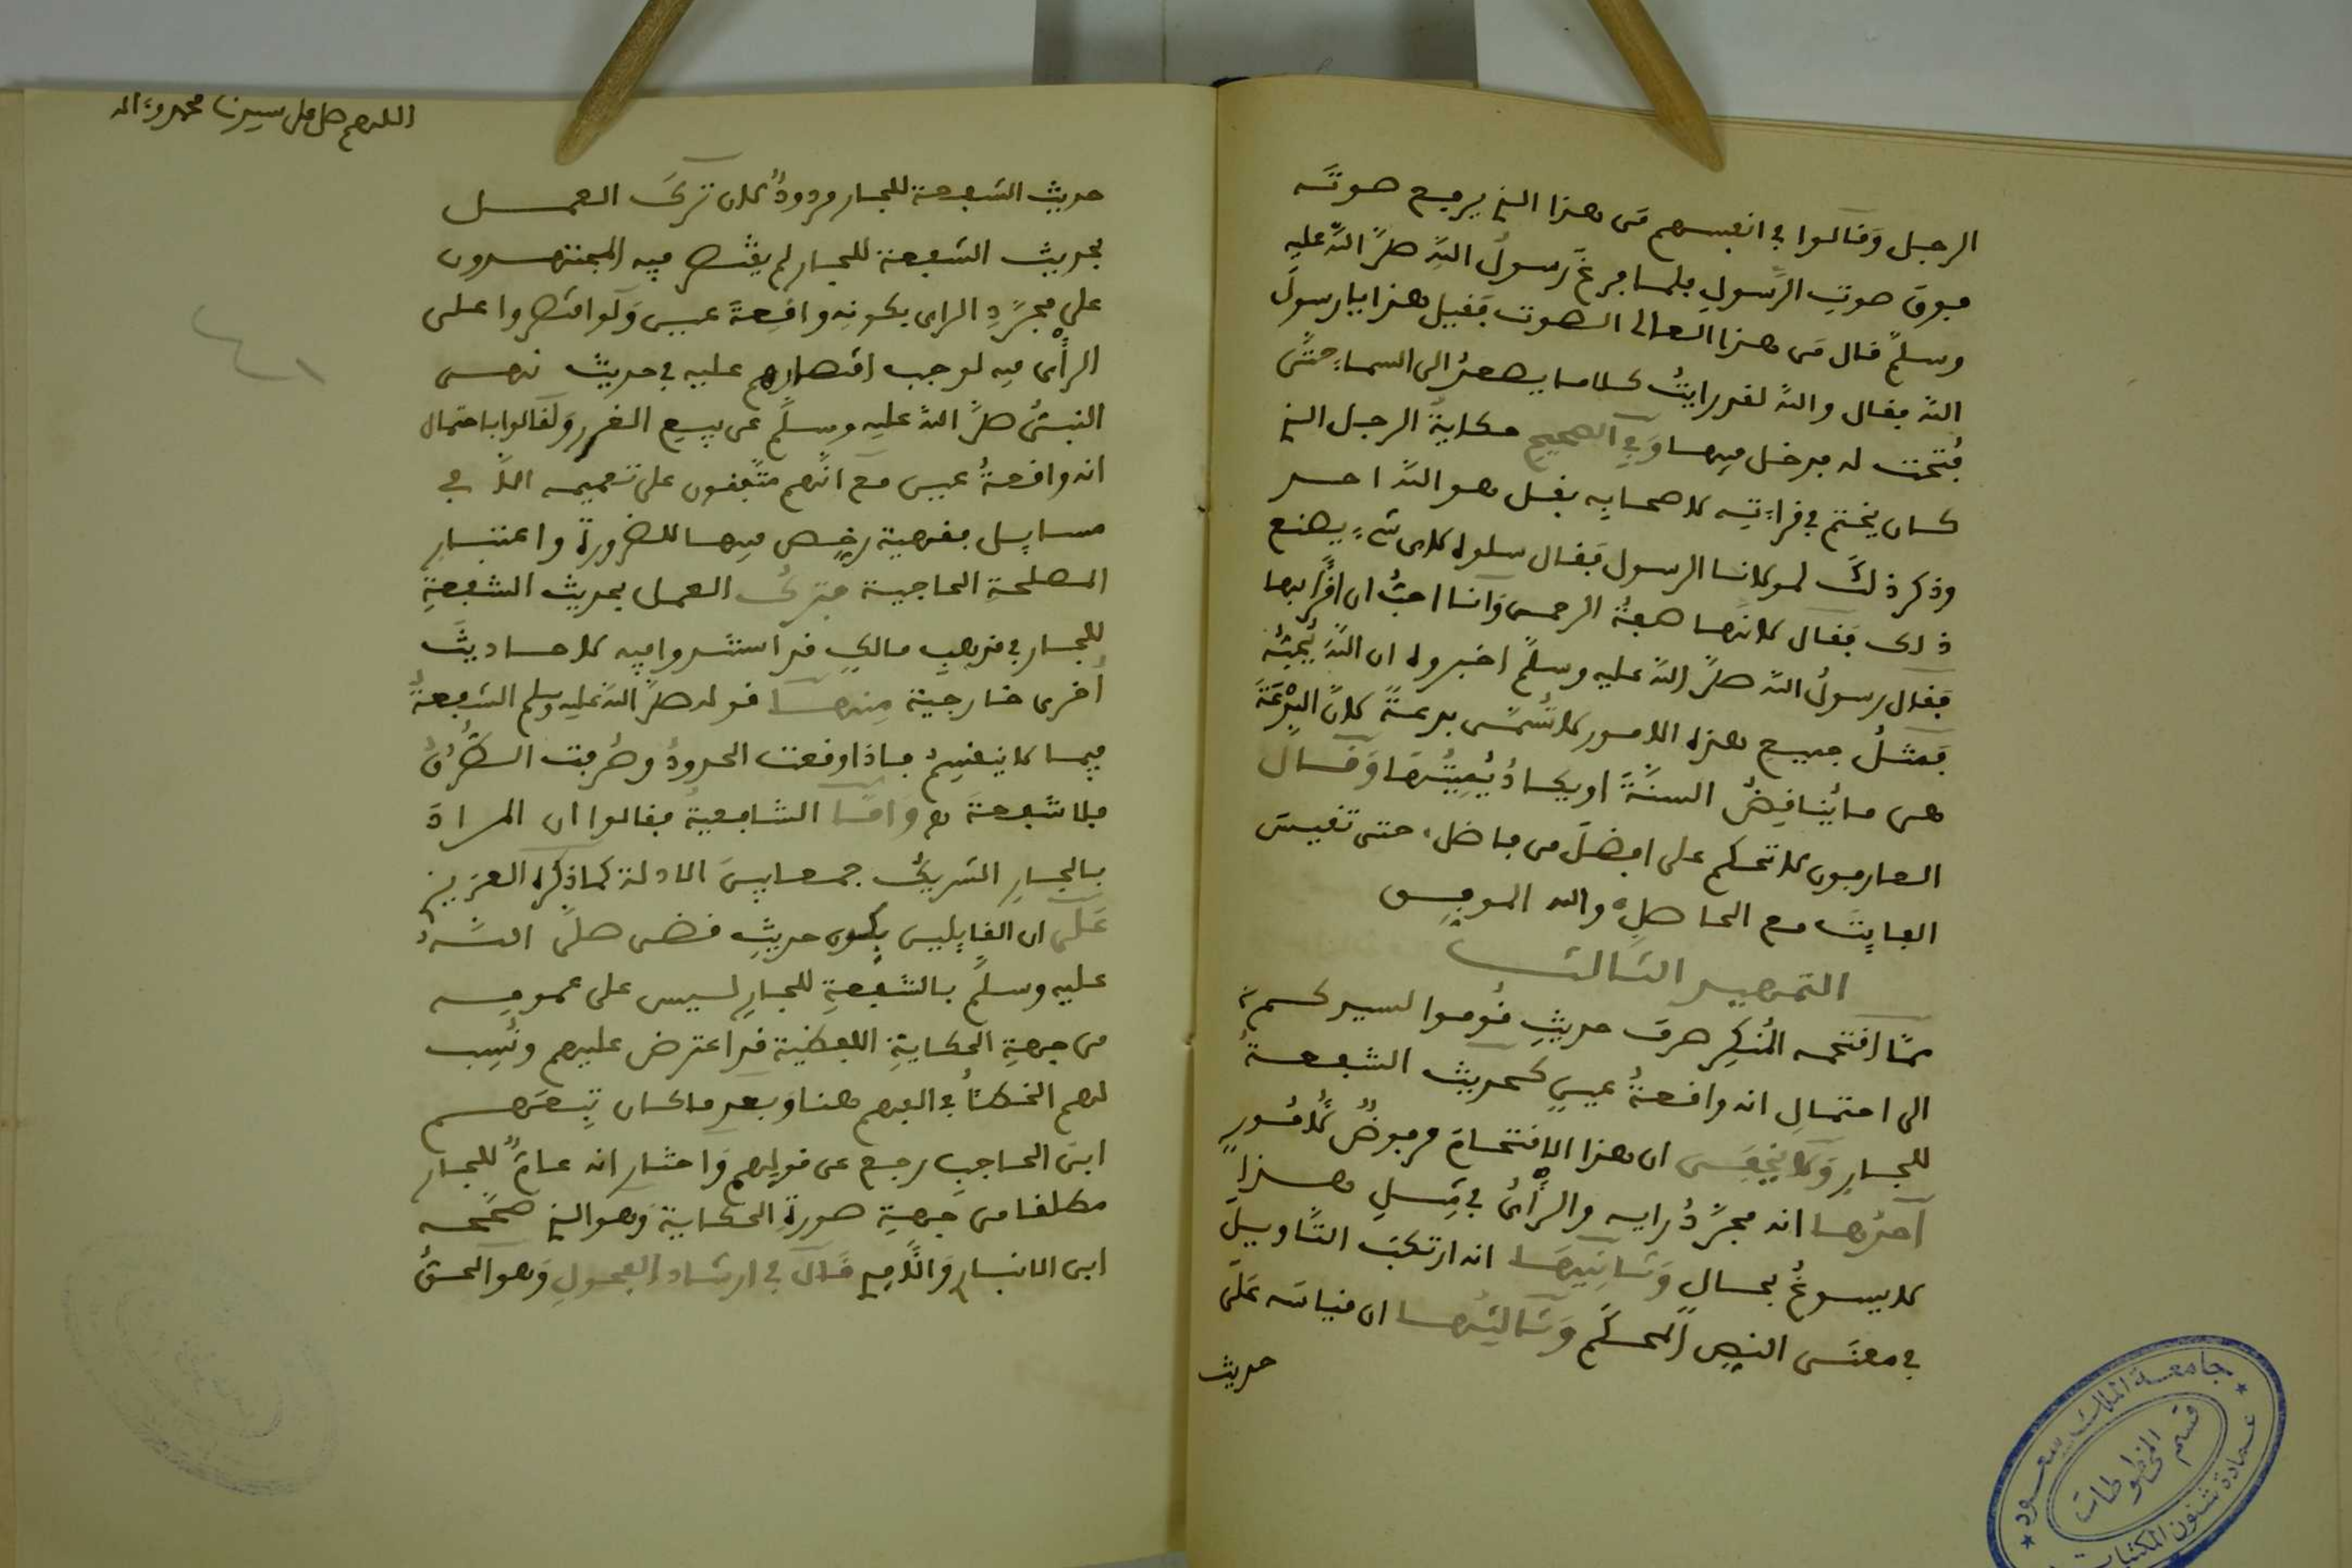 الرجل وقالوا في انفسهم من هذا الذي يرفع صوته
فوق صوت الرسول فلما فرغ رسول الله صلى الله عليه
وسلم قال من هذا العالى الصوت فقيل هذا يا رسول
الله فقال والله لقد رايت كلاما يصعد الى السماء حتى
فتحت له فدخل فيها وفي الصحيح حكاية الرجل الذي
كان يختم في قراءته لاصحابه بقل هو الله احد
وذكر ذلك لمولانا الرسول فقال سلوه لاى شىء يصنع
ذلك فقال لانها صفة الرحمن وانا احب ان اقرأ بها
فقال رسول الله صلى الله عليه وسلم اخبروه ان الله يحبه
فمثل جميع هذه الامور لا تسمى بدعة لان البدعة
هى ما يناقض السنة او يكاد يميتها وقال
العارفون لا تحكم على افضل من فاضل، حتى تقيس
الفايت مع الحاصل، والله الموفق
التمهيد الثالث
مما اقتحمه المنكر صرف حديث قوموا لسيدكم،
الى احتمال انه واقعة عين كحديث الشفعة
للجار ولا يخفى ان هذا الاقتحام مرفوض لامور
احدها انه مجرد رايه والرأى في مثل هذا
لا يسوغ بحال وثانيها انه ارتكب التاويل
في معنى النص المحكم وثالثها ان قياسه على
حديث
اللهم صل على سيدنا محمد وءاله
٤١
حديث الشفعة للجار مردود لان ترك العمل
بحديث الشفعة للجار لم يقتصر فيه المجتهدون
على مجرد الراى بكونه واقعة عين ولو اقتصروا على
الرأى فيه لوجب اقتصارهم عليه في حديث نهى
النبى صلى الله عليه وسلم عن بيع الغرر ولقالوا باحتمال
انه واقعة عين مع انهم متفقون على تعميمه الا في
مسايل فقهية رخص فيها للضرورة واعتبار
المصلحة الحاجية فترك العمل بحديث الشفعة
للجار في مذهب مالك قد استندوا فيه لاحاديث
أخرى خارجية منها قوله صلى الله عليه وسلم الشفعة
فيما لا ينقسم فاذا وقعت الحدود وصرفت الطرق
فلا شفعة هـ واما الشافعية فقالوا ان المراد
بالجار الشريك جمعا بين الادلة كما ذكره العزيز
على ان القايلين بكون حديث قضى صلى الله
عليه وسلم بالشفعة للجار ليس على عمومه
من جهة الحكاية اللفظية قد اعترض عليهم ونسب
لهم الخطأ في الفهم هنا وبعد ما كان تبعهم
ابن الحاجب رجع عن قولهم واختار انه عام للجار
مطلقا من جهة صورة الحكاية وهو الذي صححه
ابن الانبار والذي قال في ارشاد الفحول وهو الحق
جامعة الملك سعود
قسم المخطوطات
عمادة شئون المكتبات